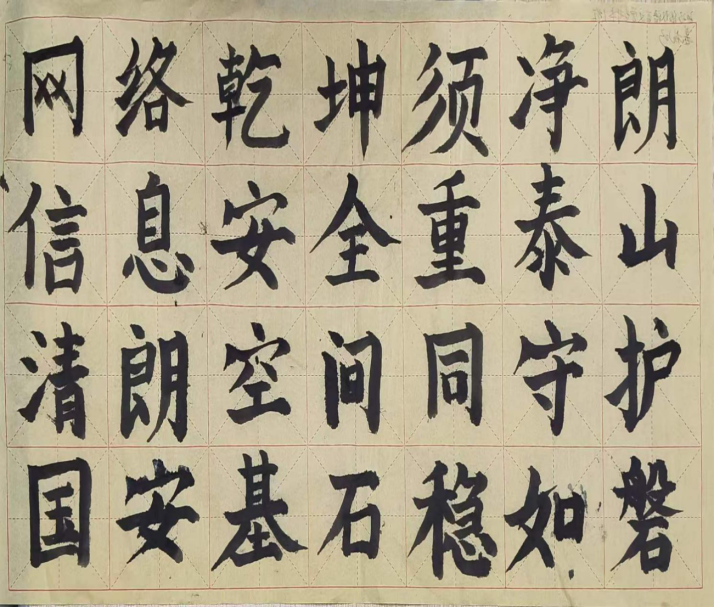 网络乾坤须净朗
信息安全重泰山
清朗空间同守护
国安基石稳如磐